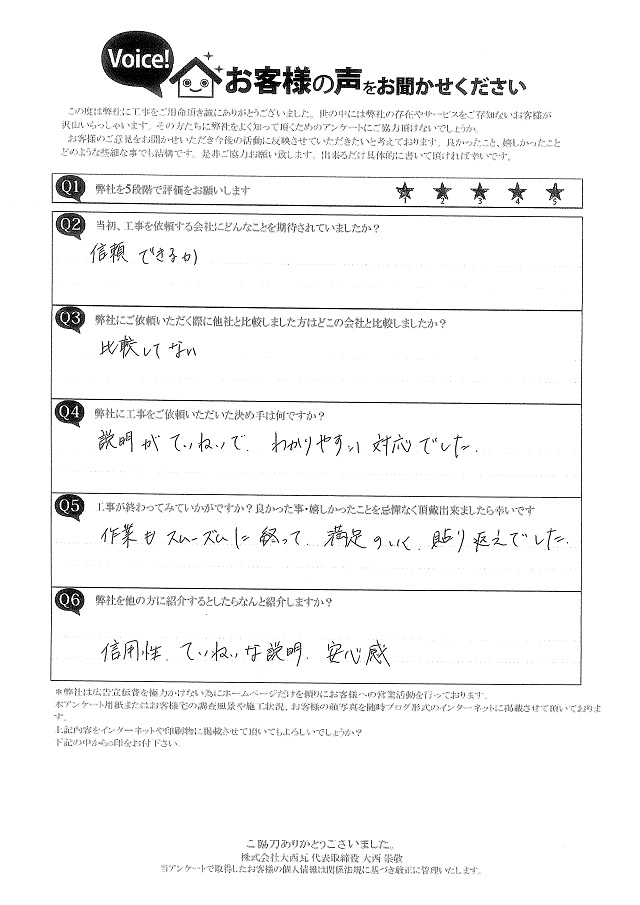 Voice!
お客様の声をお聞かせください
この度は弊社に工事をご用命頂き誠にありがとうございました。世の中には弊社の存在やサービスをご存知ないお客様が
沢山いらっしゃいます。その方たちに弊社をよく知って頂くためのアンケートにご協力頂けないでしょうか。
お客様のご意見をお聞かせいただき今後の活動に反映させていただきたいと考えております。良かったこと、嬉しかったこと
どのような些細な事でも結構です。是非ご協力お願い致します。出来るだけ具体的に書いて頂ければ幸いです。
Q1 弊社を5段階で評価をお願いします
1 2 3 4 5
Q2 当初、工事を依頼する会社にどんなことを期待されていましたか?
信頼できるか
Q3 弊社にご依頼いただく際に他社と比較しました方はどこの会社と比較しましたか?
比較してない
Q4 弊社に工事をご依頼いただいた決め手は何ですか?
説明がていねいで、わかりやすい対応でした。
Q5 工事が終わってみていかがですか?良かった事・嬉しかったことを忌憚なく頂戴出来ましたら幸いです
作業もスムーズムに終って、満足のいく、貼り返えでした。
Q6 弊社を他の方に紹介するとしたらなんと紹介しますか?
信用性、ていねいな説明、安心感
*弊社は広告宣伝費を極力かけない為にホームページだけを頼りにお客様への営業活動を行っております。
本アンケート用紙またはお客様宅の調査風景や施工状況、お客様の顔写真を随時ブログ形式のインターネットに掲載させて頂いておりま
す。
上記内容をインターネットや印刷物に掲載させて頂いてもよろしいでしょうか?
下記の中から○印をお付下さい。
ご協力ありがとうございました。
株式会社大西瓦 代表取締役 大西 崇敬
当アンケートで取得したお客様の個人情報は関係法規に基づき厳正に管理いたします。